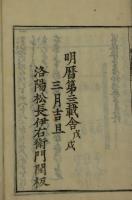 明暦第三載舎戊戌
三月吉旦
洛陽松長伊右衛門開板